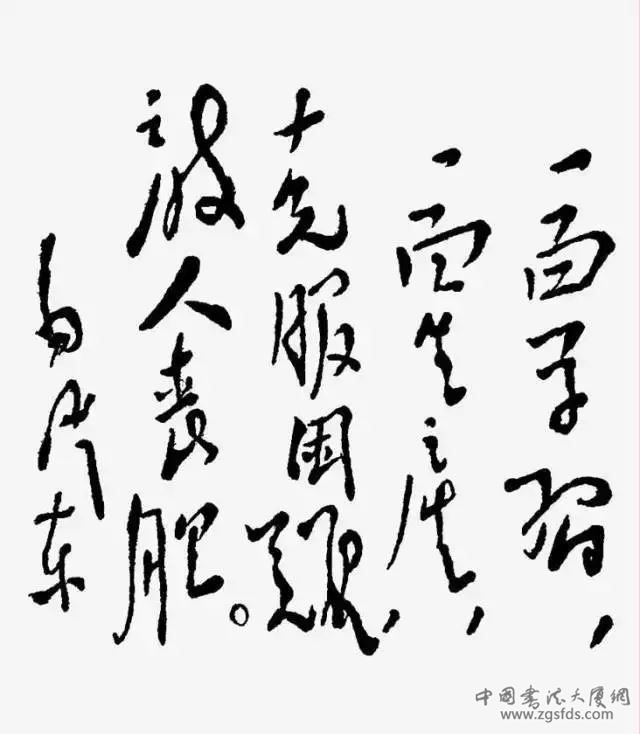 一面学習,
一面生產,
克服困難,
敵人喪胆。
毛泽东
中国书法大厦網
www.zgsfds.com